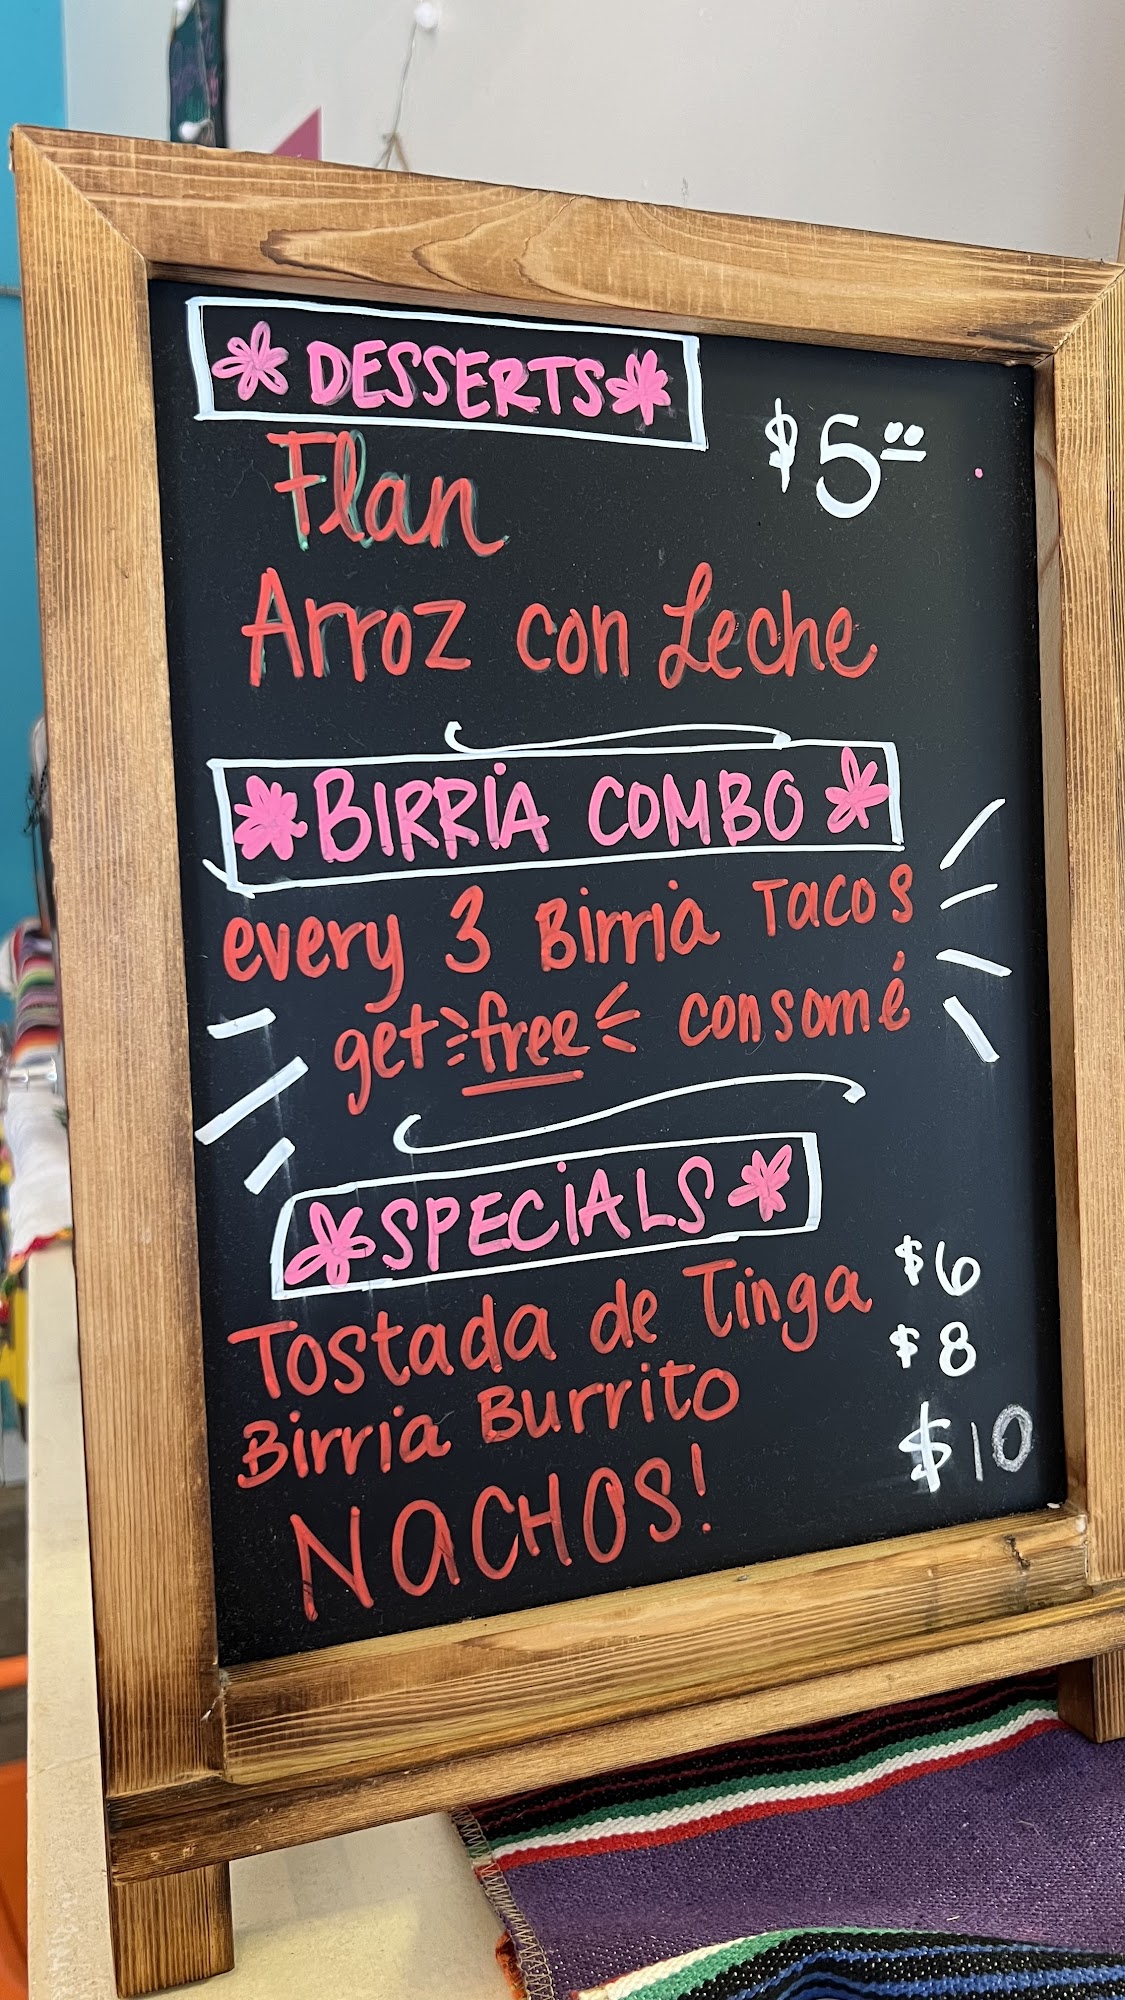 DESSERTS
$5.00
Flan
Arroz con Leche
BIRRIA COMBO
every 3 Birria Tacos
get free consomé
SPECIALS
Tostada de Tinga $6
Birria Burrito $8
NACHOS! $10